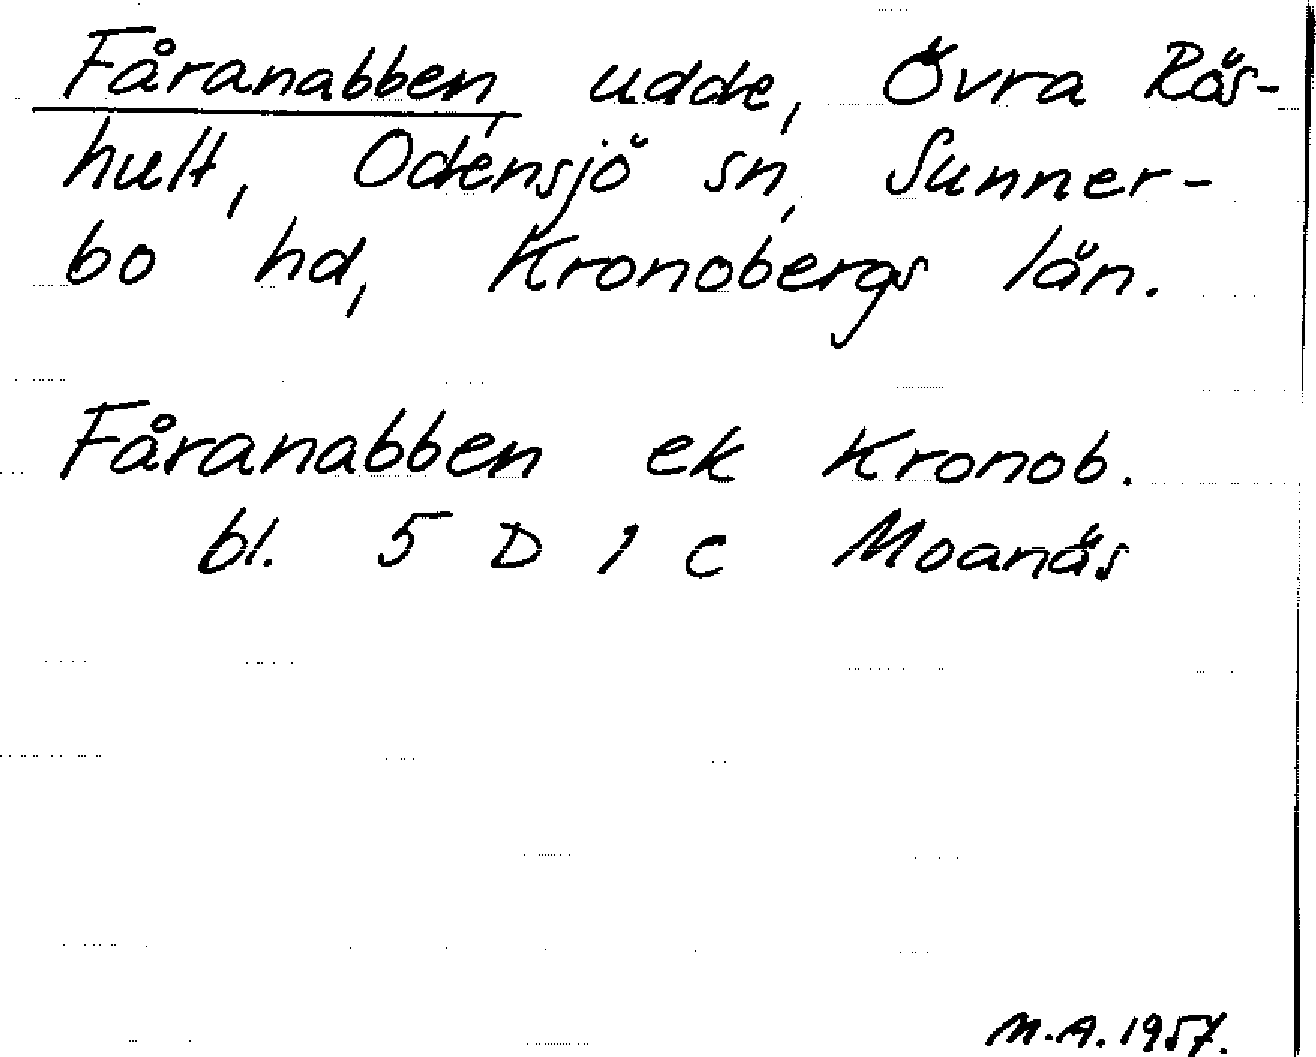 Fåranabben, udde, Övra Rös-
hult, Odensjö sn, Sunner-
bo hd, Kronobergs län.
Fåranabben ek Kronob.
bl. 5 D 1 c Moanäs
M.A. 1957.